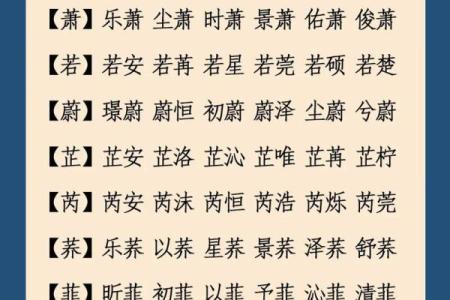 【萧】乐萧 尘萧 时萧 景萧 佑萧 俊萧
【若】若安 若苒 若星 若莞 若硕 若楚
【蔚】璟蔚 蔚恒 初蔚 蔚泽 尘蔚 兮蔚
【芷】芷安 芷洛 芷沁 芷唯 芷苒 芷柠
【芮】芮安 芮沫 芮恒 芮浩 芮烁 芮莞
【荞】乐荞 以荞 星荞 景荞 泽荞 舒荞
【菲】昕菲 初菲 以菲 予菲 沁菲 清菲